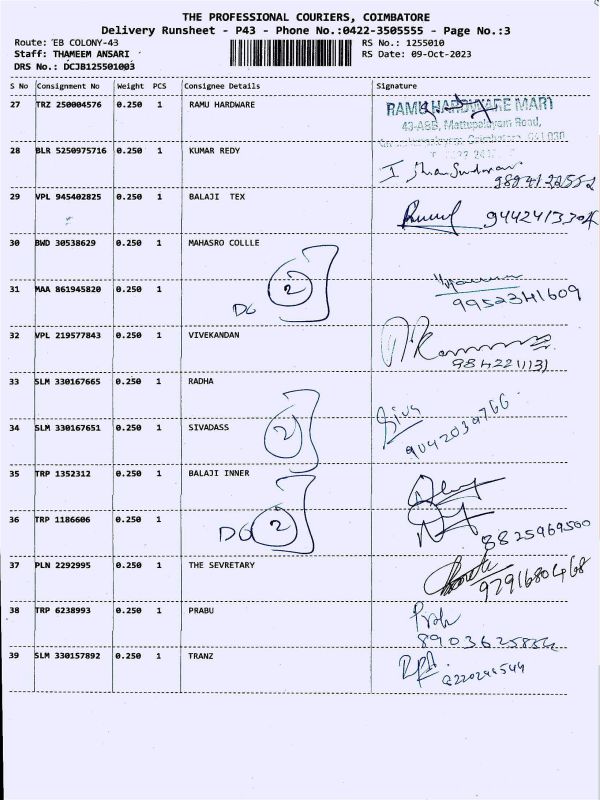 THE PROFESSIONAL COURIERS, COIMBATORE
Delivery Runsheet - P43 - Phone No.:0422-3505555 - Page No.:3
Route: EB COLONY-43 RS No.: 1255010
Staff: THAMEEM ANSARI RS Date: 09-Oct-2023
DRS No.: DCJB125501003
S No Consignment No Weight PCS Consignee Details Signature
27 TRZ 250004576 0.250 1 RAMU HARDWARE
RAMU HARDWARE MART
43-A&B, Mattupalayam Road,
28 BLR 5250975716 0.250 1 KUMAR REDY
29 VPL 945402825 0.250 1 BALAJI TEX
9442413304
30 BWD 30538629 0.250 1 MAHASRO COLLLE
2
DC
31 MAA 861945820 0.250 1
9952341609
32 VPL 219577843 0.250 1 VIVEKANDAN
9842211131
33 SLM 330167665 0.250 1 RADHA
Siva
9042039766
34 SLM 330167651 0.250 1 SIVADASS
2
35 TRP 1352312 0.250 1 BALAJI INNER
36 TRP 1186606 0.250 1
DC 2
8825969500
37 PLN 2292995 0.250 1 THE SEVRETARY
9791680468
38 TRP 6238993 0.250 1 PRABU
39 SLM 330157892 0.250 1 TRANZ